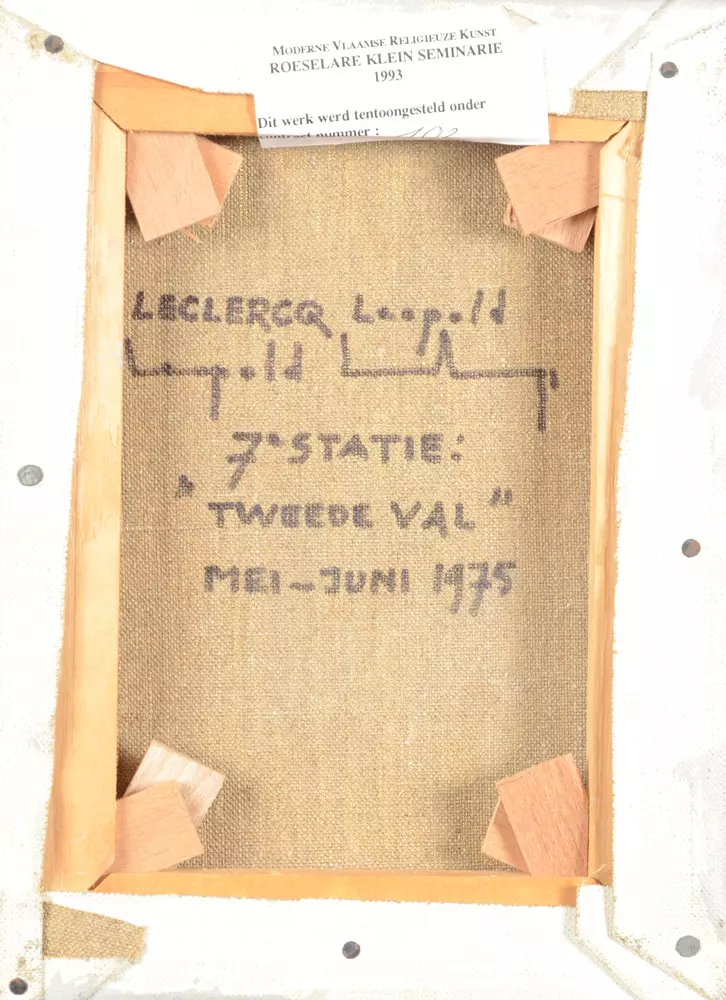 MODERNE VLAAMSE RELIGIEUZE KUNST
ROESELARE KLEIN SEMINARIE
1993
Dit werk werd tentoongesteld onder
contract nummer :
LECLERCQ Leopold
Leopold
7e STATIE:
"TWEEDE VAL"
MEI-JUNI 1975